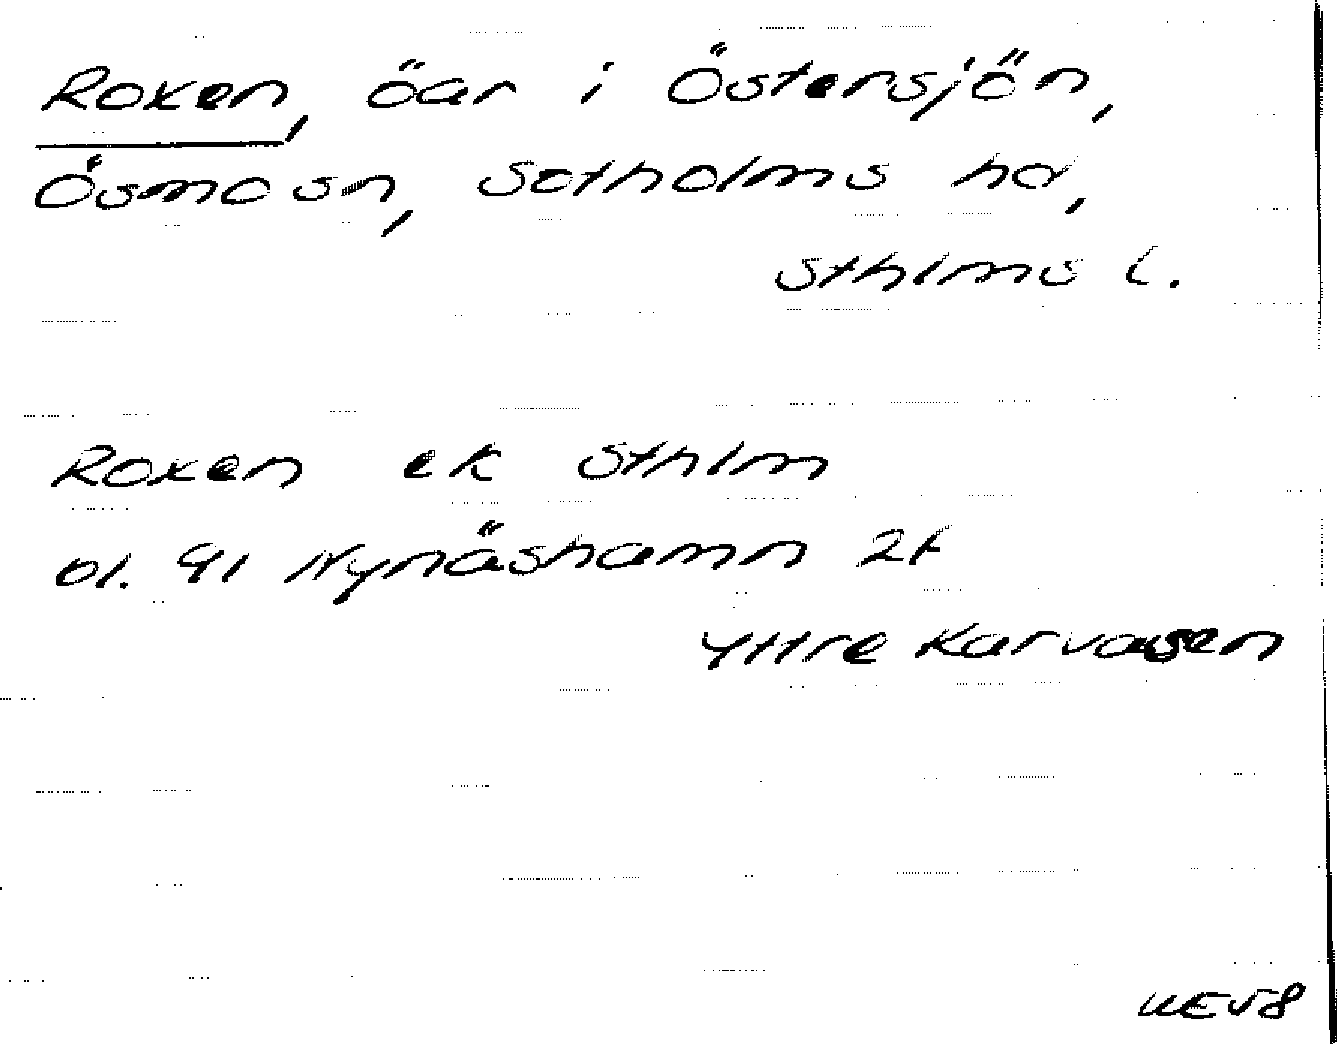 Roxen, öar i Östersjön,
Ösmo sn, Sotholms hd,
Sthlms l.
Roxen ek Sthlm
bl. 91 Nynäshamn 2k
Yttre Karvasen